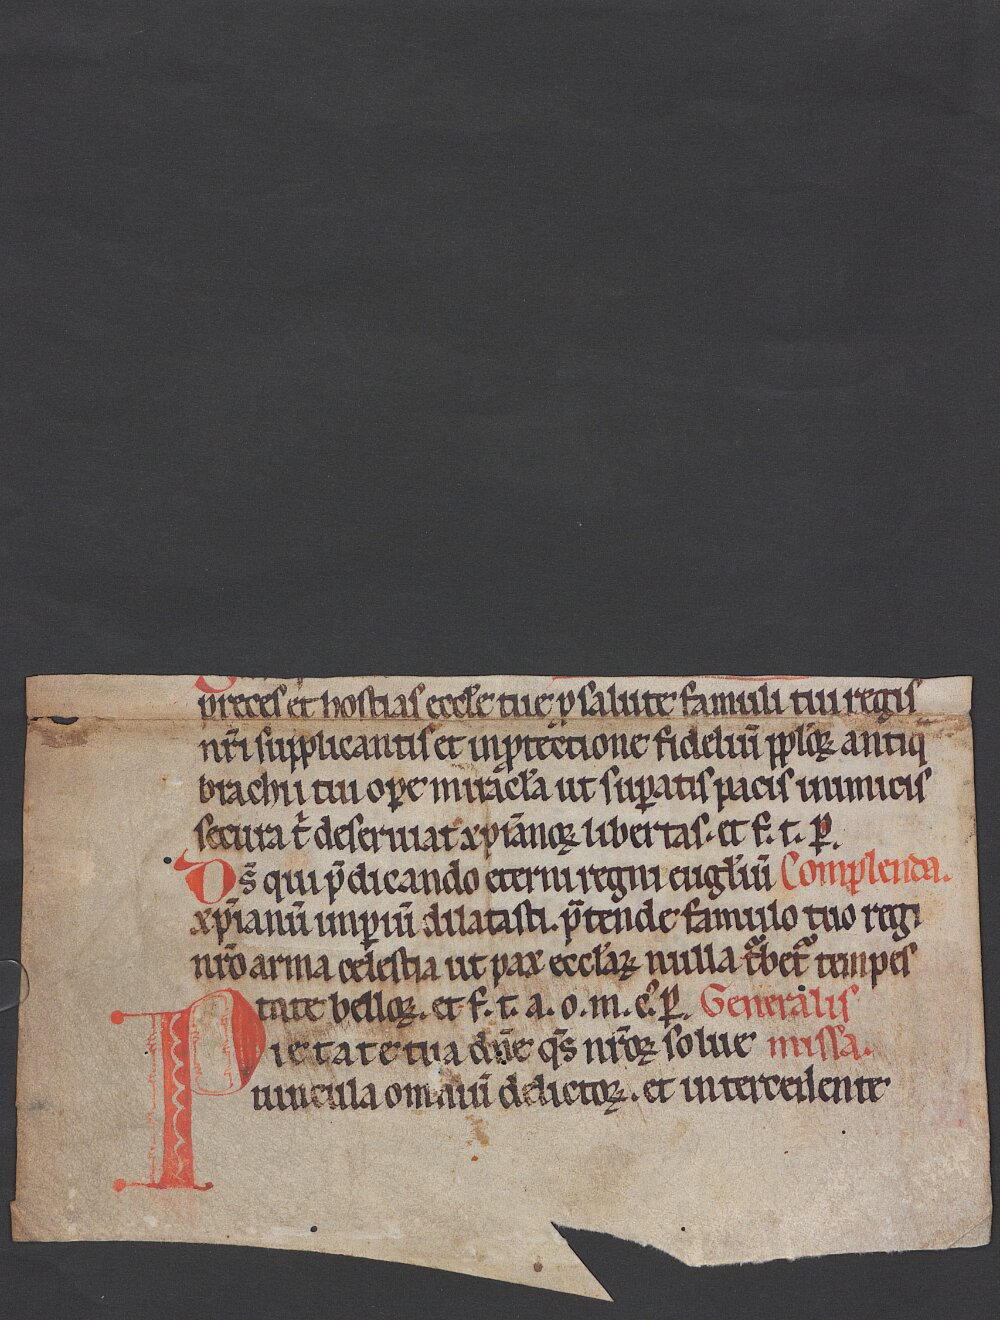 preces et hostias eccl̄e tue ꝓ salute famuli tui regis
nr̄i supplicantis et in ꝓtectione fideliū pplōꝝ antiq
brachii tui oꝑe miracl̄a ut suꝑatis pacis inimicis
secura t̄ deseruiat xpīanoꝝ libertas. et f. t. ꝑ.
Ds̄ qui p̄dicando eterni regni eugl̄iū Complenda.
xpīanū imꝑiū dilatasti. p̄tende famulo tuo regi
nr̄o arma celestia ut pax eccl̄aꝝ nulla t̄bet᷑ tempes
tate belloꝝ. et f. t. a. o. m. e. ꝑ. Generalis
Pietate tua dn̄e qs̄ nr̄oꝝ solue missa.
uincula omniū delictoꝝ. et intercedente